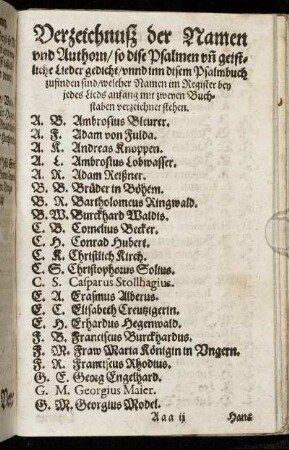 Verzeichnuß der Namen
vnd Authorn/ so dise Psalmen vñ geist-
liche Lieder gedicht/ vnnd inn disem Psalmbuch
zufinden sind/ welcher Namen im Register bey
jedes Lieds anfang mit zweyen Buch-
staben verzeichnet stehen.
A. B. Ambrosius Bleurer.
A. F. Adam von Fulda.
A. K. Andreas Knoppen.
A. L. Ambrosius Lobwasser.
A. R. Adam Reißner.
B. B. Brüder in Böhem.
B. R. Bartholomeus Ringwald.
B. W. Burckhard Waldis.
C. B. Cornelius Becker.
C. H. Conrad Hubert.
C. K. Christlich Kirch.
C. S. Christophorus Solius.
C. S. Casparus Stollhagius.
E. A. Erasmus Alberus.
E. C. Elisabeth Creutzigerin.
E. H. Erhardus Hegenwald.
F. B. Franciscus Burckhardus.
F. M. Fraw Maria Königin in Vngern.
F. R. Franciscus Rhodius.
G. E. Georg Engelhard.
G. M. Georgius Maier.
G. M. Georgius Model.
Aaa ij Hans